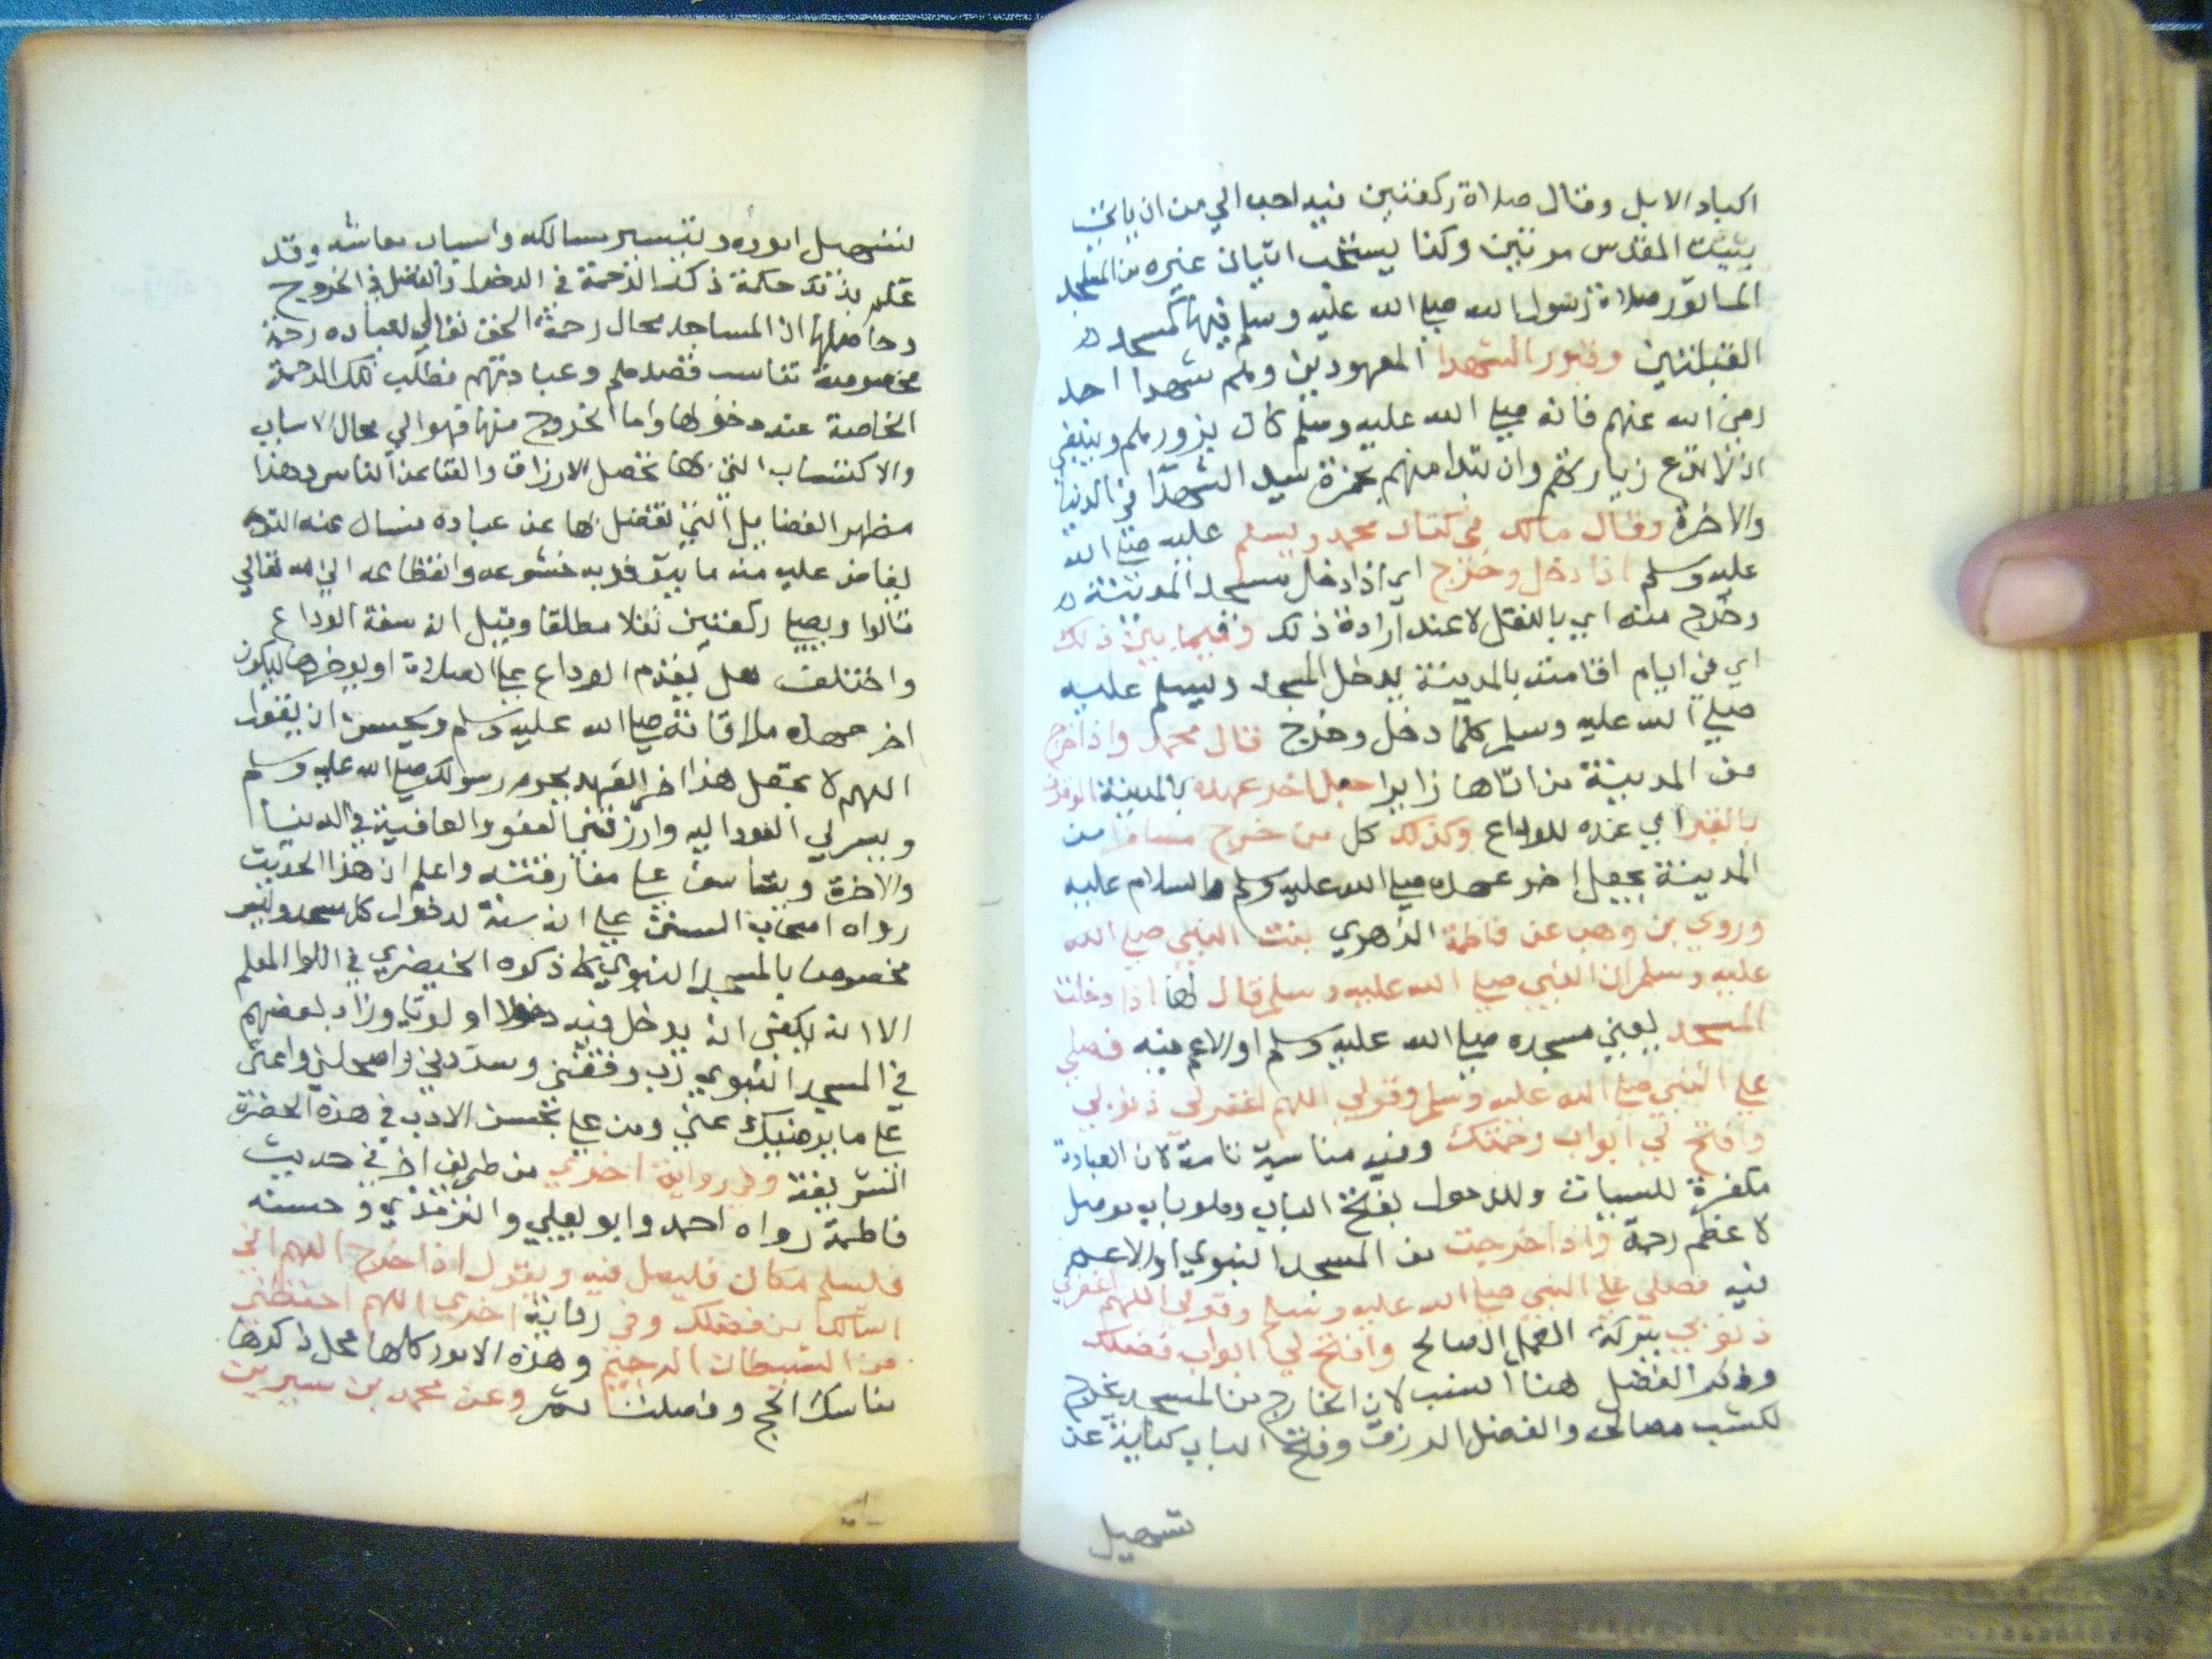 اكباد الابل وقال صلاة ركعتين فيه احب الي من ان ياتي
بيت المقدس مرتين وكذا يستحب اتيان غيره من المساجد
الماثور صلاة رسول الله صلي الله عليه وسلم فيها كمسجد
القبلتين وقبور الشهدا المعهودين ولم شهدا احد
رضي الله عنهم فانه صلي الله عليه وسلم كان يزورهم وينبغي
ان لا تدع زيارتهم وان تبدا منهم بحمزة سيد الشهدا في الدنيا
والاخرة وقال مالك في كتاب محمد ويسلم عليه صلي الله
عليه وسلم اذا دخل وخرج اي اذا دخل مسجد المدينة
وخرج منه اي بالفعل لا عند ارادة ذلك وفيما بين ذلك
اي في ايام اقامته بالمدينة يدخل المسجد ويسلم عليه
صلي الله عليه وسلم كلما دخل وخرج قال محمد واذا خرج
من المدينة من اتاها زايرا جعل اخر عهده بالمدينة الوقوف
بالقبر اي عنده للوداع وكذلك كل من خرج مسافرا من
المدينة يجعل اخر عهده صلي الله عليه وسلم والسلام عليه
وروي بن وهب عن فاطمة الزهري بنت النبي صلي الله
عليه وسلم ان النبي صلي الله عليه وسلم قال لها اذا دخلت
المسجد يعني مسجده صلي الله عليه وسلم او الاعم منه فصلي
علي النبي صلي الله عليه وسلم وقولي اللهم اغفر لي ذنوبي
وافتح لي ابواب رحمتك وفيه مناسبة تامة لان العبادة
مكفرة للسيات وللدخول بفتح الباب وهو باب موصل
لاعظم رحمة واذا خرجت من المسجد النبوي او الاعم
منه فصلي علي النبي صلي الله عليه وسلم وقولي اللهم اغفر لي
ذنوبي ببركة العمل الصالح وافتح لي ابواب فضلك
وذكر الفضل هنا انسب لان الخارج من المسجد يخرج
لكسب مصالحه والفضل الرزق وفتح الباب كناية عن
تسهيل
لتسهيل اموره وتيسير مسالكه واسباب معاشه وقد
علم بذلك حكمة ذكر الرحمة في الدخول والفضل في الخروج
وحاصلها ان المساجد محال رحمة الحق تعالي لعباده رحمة
مخصوصة تناسب قصدهم وعبادتهم فطلب تلك الرحمة
الخاصة عند دخولها واما الخروج منها فهو الي محال الاسباب
والاكتساب التي بها تحصل الارزاق والقنا عن الناس وهذا
مظهر الفضايل التي تفضل بها عن عباده فسال عنه
ليفاض عليه منه ما يتوفر به خشوعه وانقطاعه الي الله تعالي
قالوا ويصلي ركعتين نفلا مطلقا وقيل انه سنة الوداع
واختلف هل يقدم الوداع علي الصلاة او يوخرها ليكون
اخر عهده ملاقاته صلي الله عليه وسلم ويحسن ان يقول
اللهم لا تجعل هذا اخر العهد بحرم رسولك صلي الله عليه وسلم
ويسر لي العود اليه وارزقني العفو والعافية في الدنيا
والاخرة ويتاسف علي مفارقته واعلم ان هذا الحديث
رواه اصحاب السنن علي انه سنة لدخول كل مسجد وليس
مخصوصا بالمسجد النبوي كما ذكره الخيضري في اللوا المعلم
الا انه يكفي انه يدخل فيه دخولا اوليا وزاد بعضهم
في المسجد النبوي رب وفقني وسددني واصلحني واعني
علي ما يرضيك عني ومن علي بحسن الادب في هذه الحضرة
الشريفة وفي رواية اخري من طريق اخر في حديث
فاطمة رواه احمد وابو يعلي والترمذي وحسنه
فليسلم مكان فليصل فيه ويقول اذا خرج اللهم اني
اسالك من فضلك وفي رواية اخري اللهم احفظني
من الشيطان الرجيم وهذه الامور كلها محل ذكرها
مناسك الحج وعن محمد بن سيرين